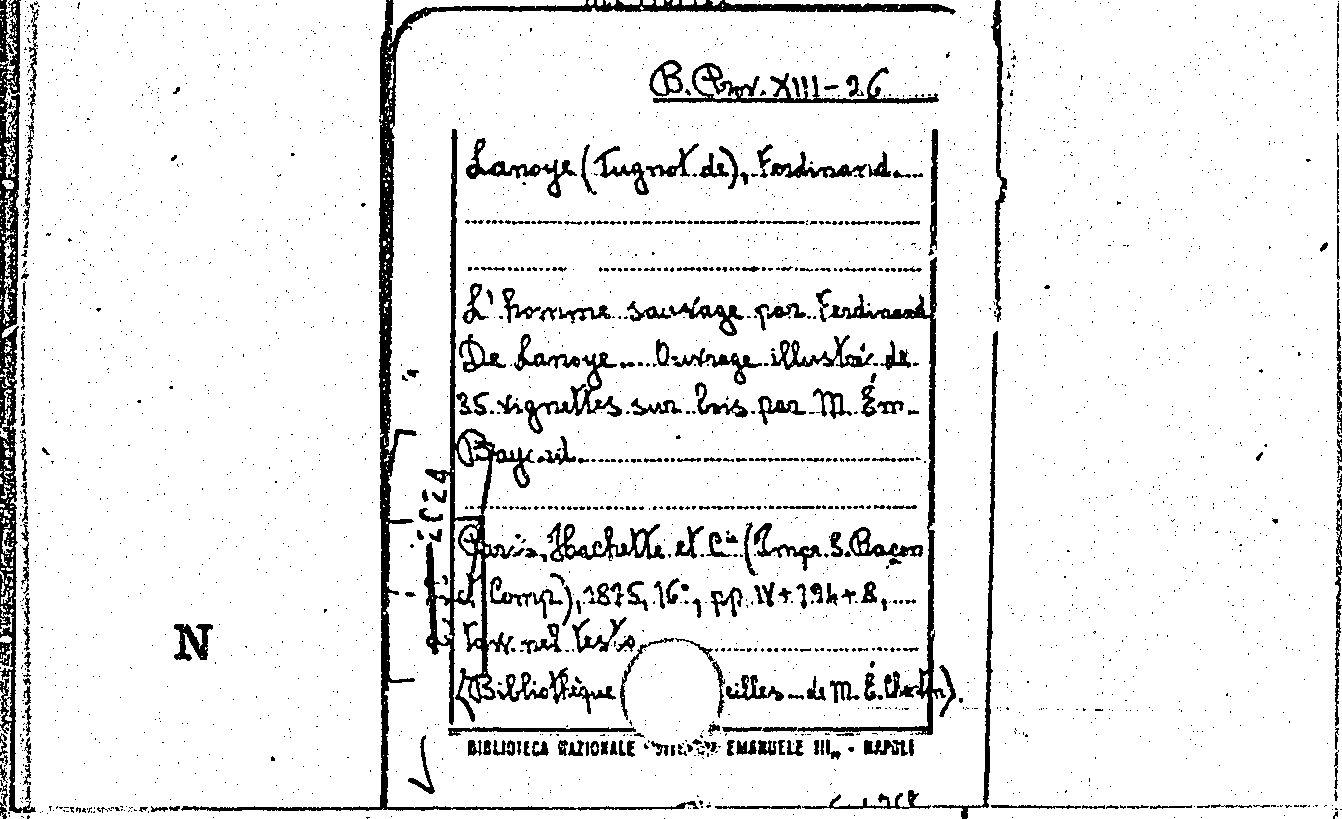 B. Prov. XIII-26
Lanoye (Tugnot de), Ferdinand
L'homme sauvage par Ferdinand
De Lanoye... Ouvrage illustré de
35 vignettes sur bois par M. Ém.
Bayard.
Paris, Hachette et Cie (Impr. S. Raçon
et Comp), 1875, 16°, pp IV+294+8,
tavv. nel testo
(Bibliothèque eilles ... de M. É. Charton).
BIBLIOTECA NAZIONALE EMANUELE III,, - NAPOLI
N